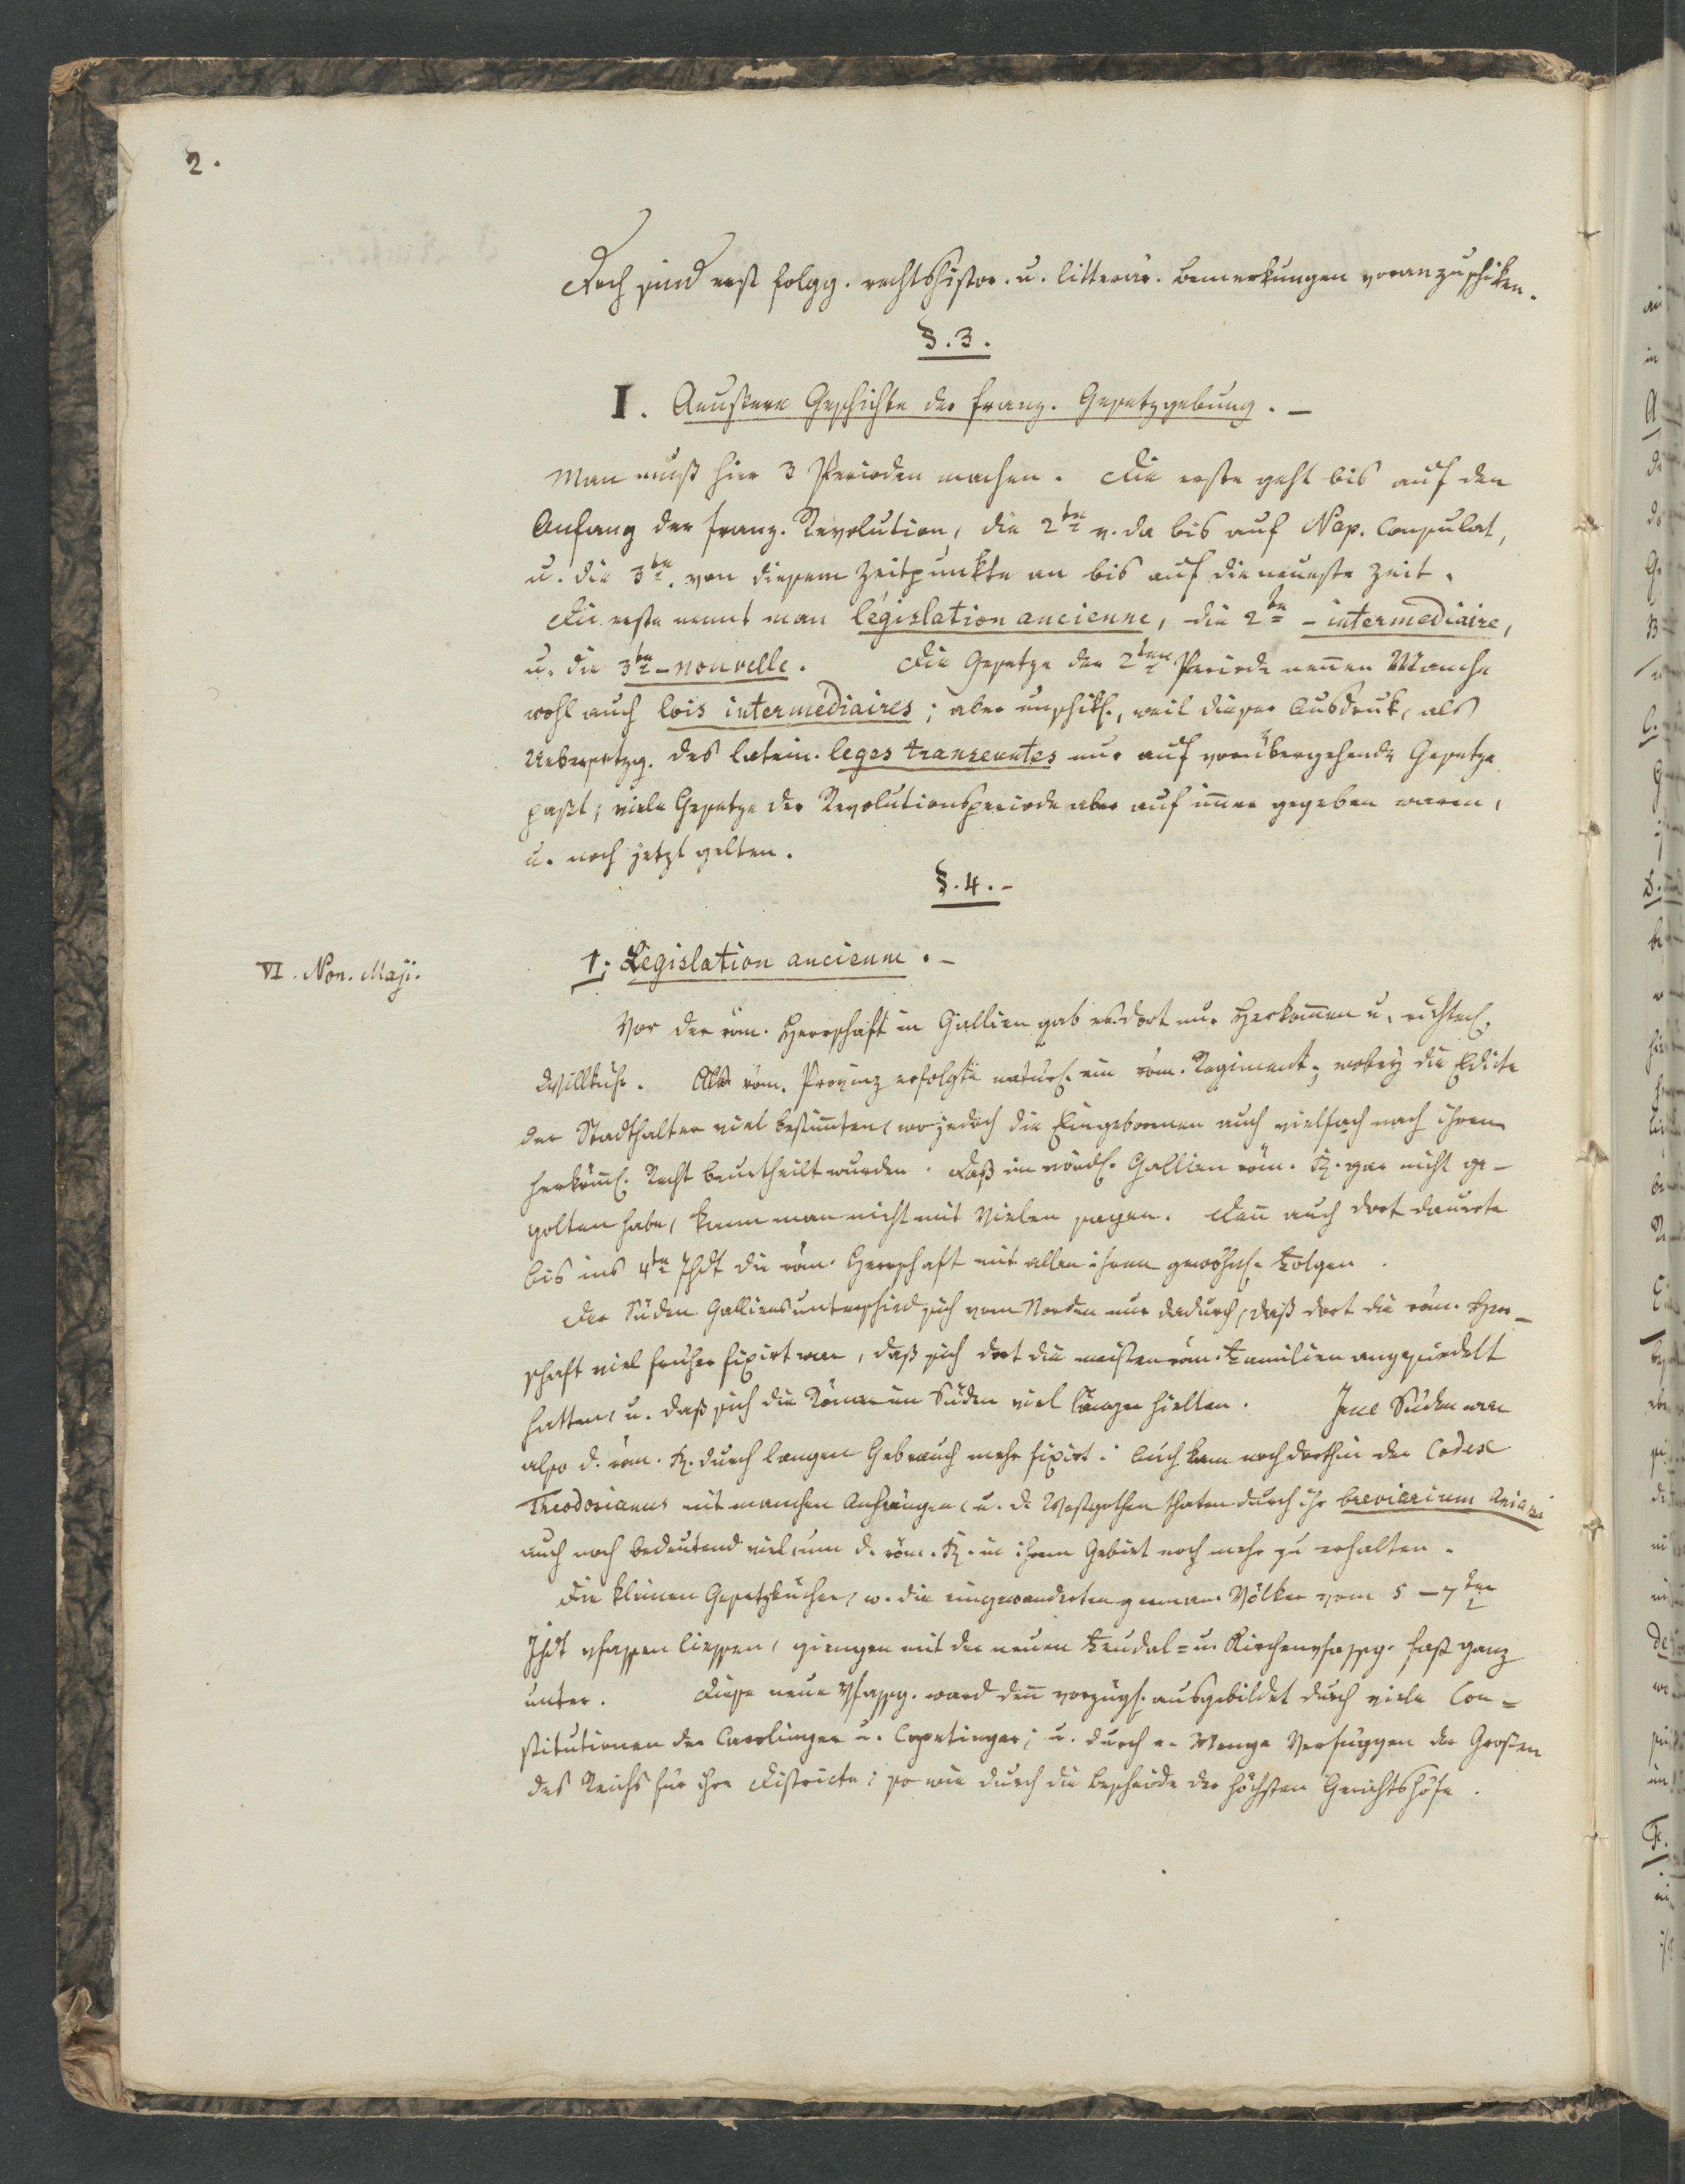 2.
Doch sind erst folgg. rechtshistor. u. litterär. Bemerkungen voranzuschiken.
§. 3.
I. Aeussere Geschichte der franz. Gesetzgebung. –
Man muß hier 3 Perioden machen. Die erste geht bis auf den
Anfang der franz. Revolution, die 2te v. da bis auf Nap. Consulat,
u. die 3te. von diesem Zeitpunkte an bis auf die neueste Zeit.
Die erste nennt man législation ancienne, die 2te – intermediaire,
u. die 3te – nouvelle. Die Gesetze der 2ten Periode nennen Manche
wohl auch lois intermédiaires; aber unschikl., weil dieser Ausdruk, als
Uebersetzg. des latein. leges transeuntes nur auf vorübergehende Gesetze
paßt, viele Gesetze der Revolutionsperiode aber auf immer gegeben waren,
u. noch jetzt gelten.
§. 4. –
VI. Non. Maji.
1; Legislation ancienne. –
Vor der röm. Herrschaft in Gallien gab es dort nur Herkommen u. richterl.
Willkühr. Als röm. Provinz erfolgte natürl. ein röm. Regiment; wobey die Edicte
der Stadthalter viel bestimmten, wo jedoch die Eingebornen auch vielfach nach ihrem
herköml. Recht beurtheilt wurden. Daß im nördl. Gallien röm. R. gar nicht ge-
golten habe, kann man nicht mit Vielen sagen. Denn auch dort dauerte
bis ins 4te Jhdt die röm. Herrschaft mit allen ihren gewöhnl. Folgen.
Der Süden Galliens unterschied sich vom Norden nur dadurch, daß dort die röm. Herr-
schaft viel früher fixirt war, daß sich dort die meisten röm. Familien angesiedelt
hatten, u. daß sich die Römer im Süden viel länger hielten. Im Süden war
also d. röm. R. durch langen Gebrauch mehr fixirt. Auch kam noch dorthin der Codex
Theodosianus mit manchen Anhängen, u. d. Westgothen thaten durch ihr breviarium Aniani
auch noch bedeutend viel, um d. röm. R. in ihrem Gebiet noch mehr zu erhalten.
Die kleinen Gesetzbücher, w. die eingewanderten german. Völker vom 5–7ten
Jhdt vfassen liessen, giengen mit der neuen Feudal= u. Kirchenvfassg. fast ganz
unter. Diese neue Vfassg. ward denn vorzügl. ausgebildet durch viele Con=
stitutionen der Carolinger u. Capetinger; u. durch e. Menge Verfüggen der Großen
des Reichs für ihre Districte; so wie durch die Bescheide der höchsten Gerichtshöfe.